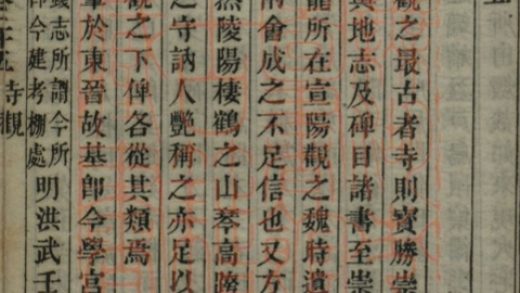 觀之最古者寺則寶勝崇
輿地志及碑目諸書至崇
龍所在宣陽觀之魏時遺
會成之不足信也又方
然陵陽棲鶴之山琴高
之守訥人艷稱之亦足以
觀之下俾各從其類焉
肇於東晉故基卽今學宮
志所謂今所
卽今建考棚處
明洪武壬
寺觀